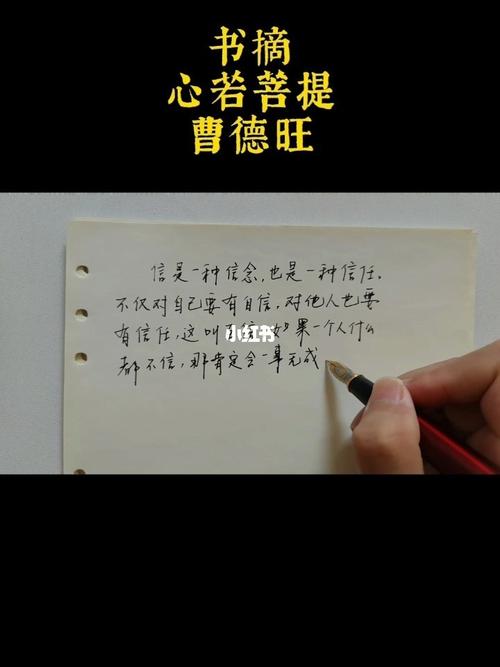 书摘
心若菩提
曹德旺
信是一种信念,也是一种信任。
不仅对自己要有自信,对他人也要
有信任,这叫 如果一个人什么
小红书
都不信,那肯定会一事无成